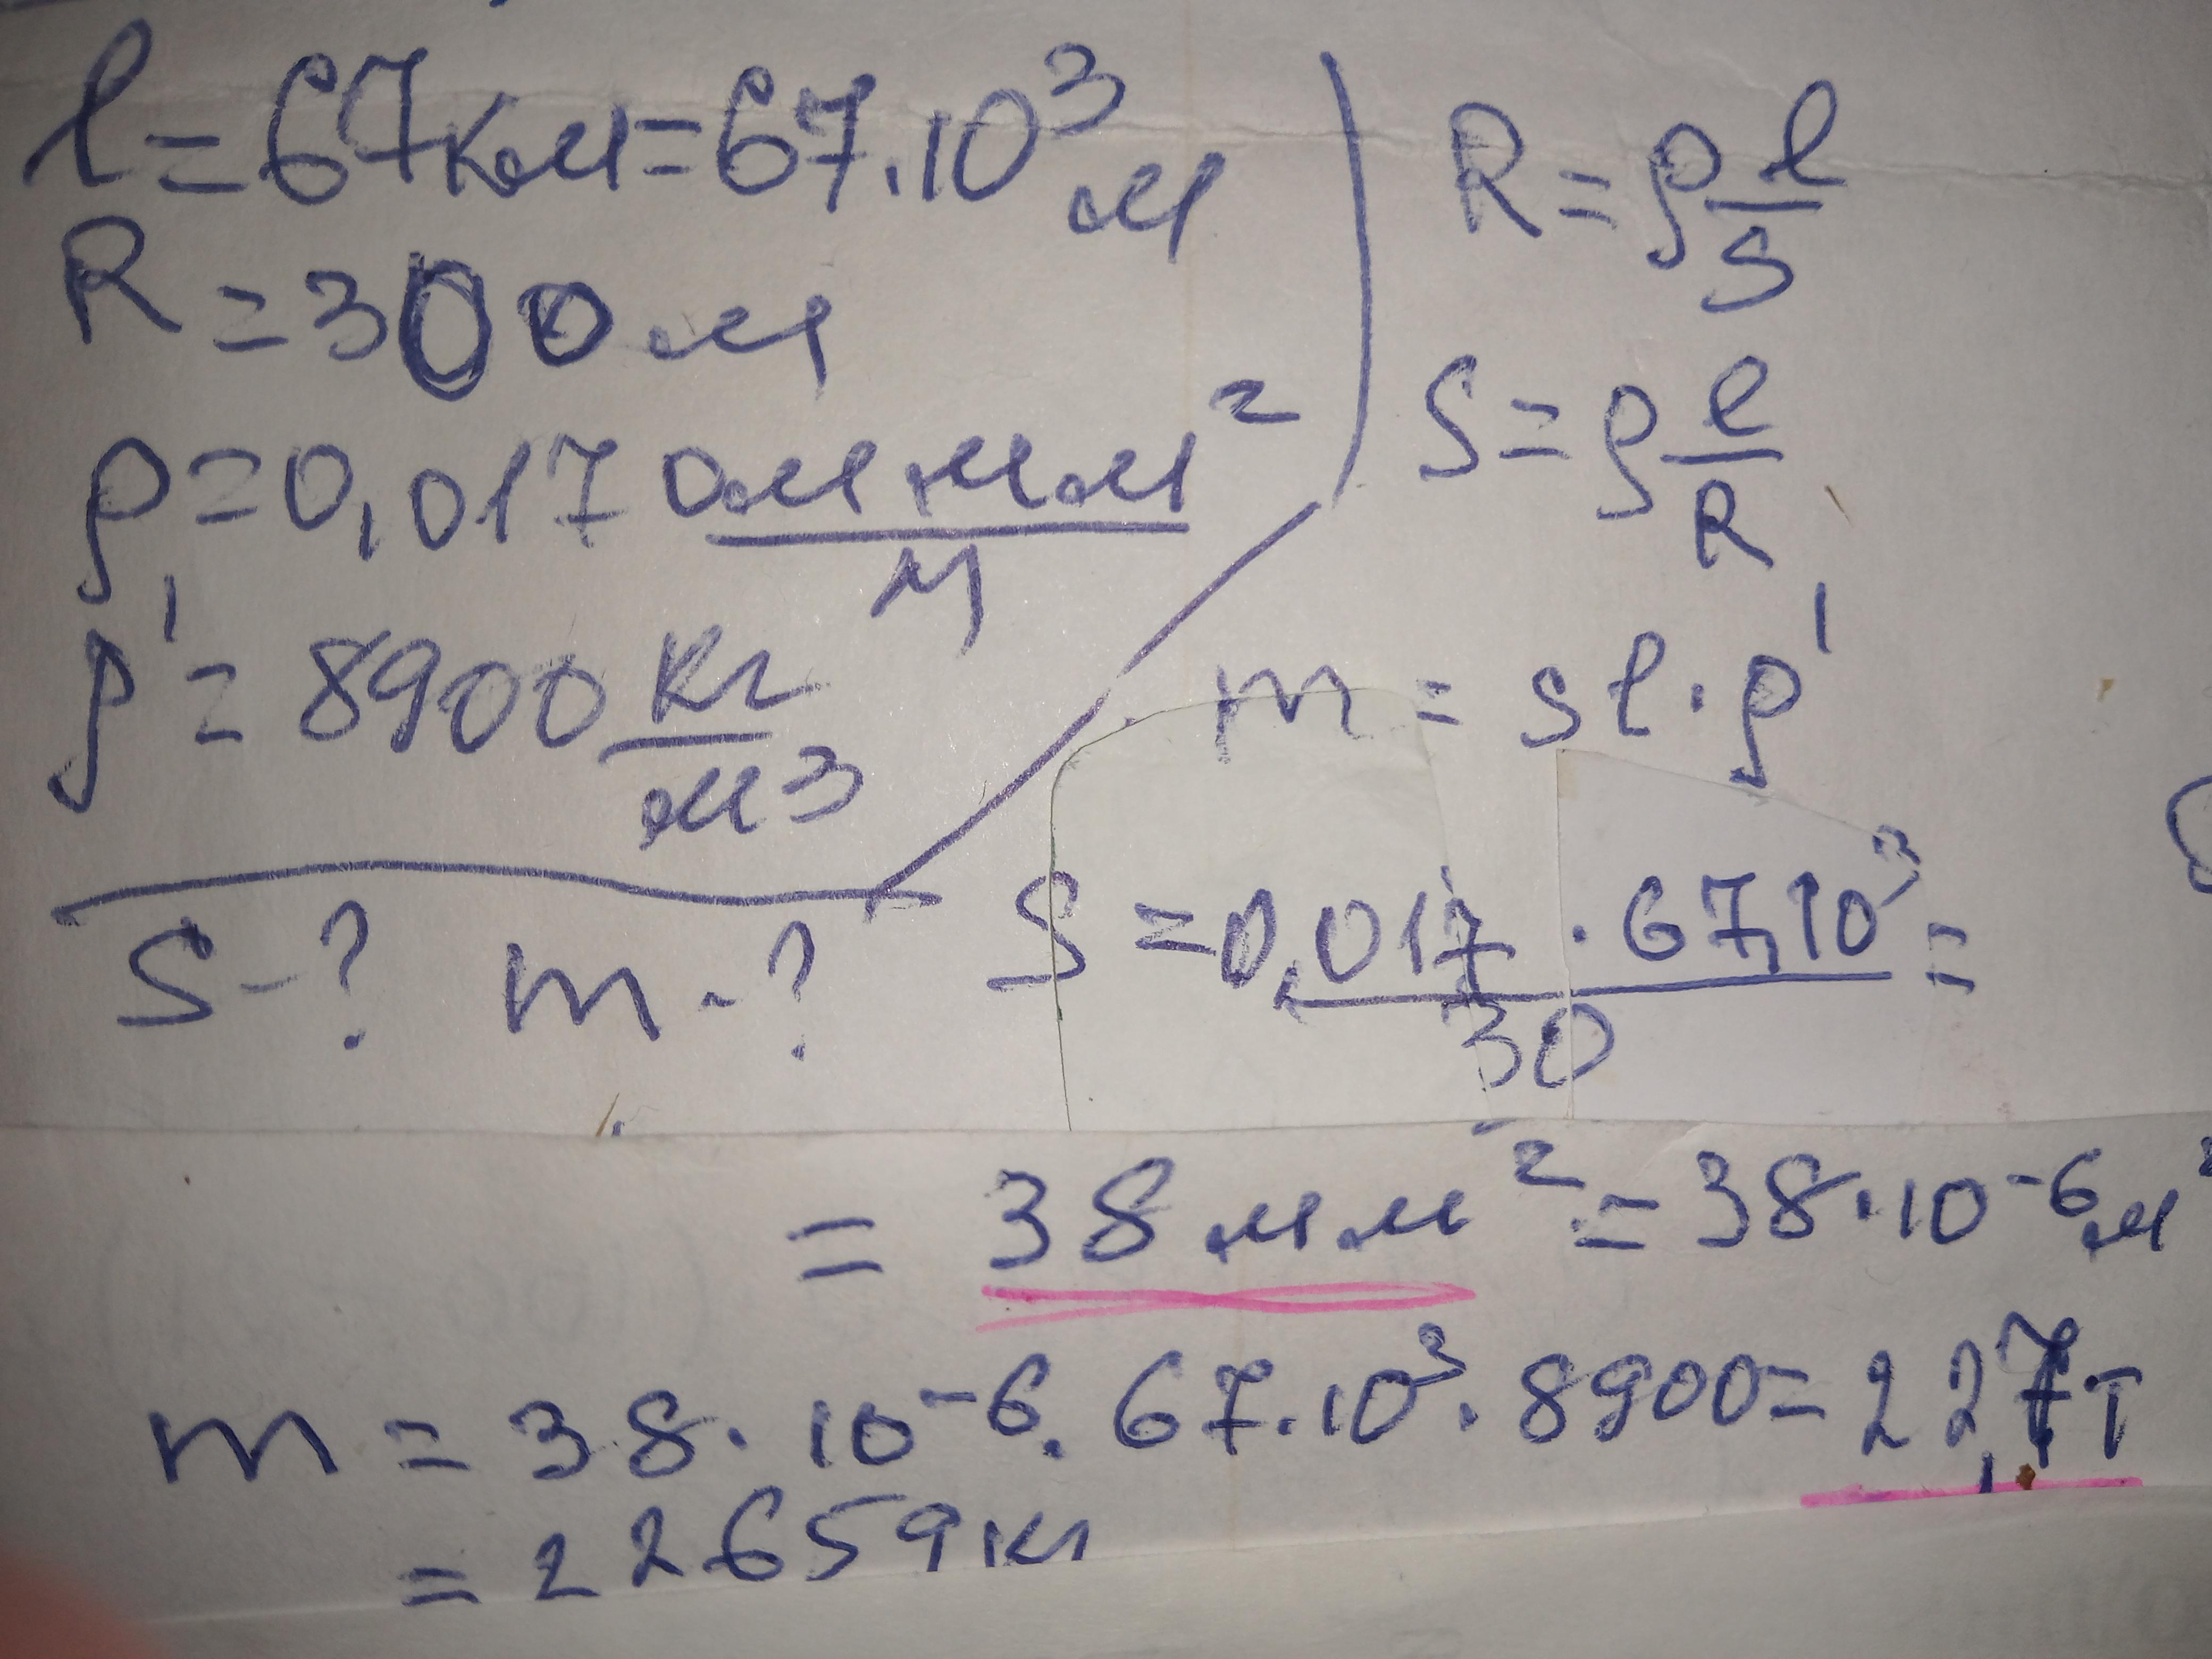 l=67км=67·10³м
R=300м
ρ=0,017 Ом мм²/м
ρ'=8900 кг/м³
S-? m-?
R=ρ l/S
S=ρ l/R
m=sl·ρ'
S=0,017·67·10³/30=
=38мм²=38·10⁻⁶м²
m=38·10⁻⁶·67·10³·8900=22,7т
=22659кг